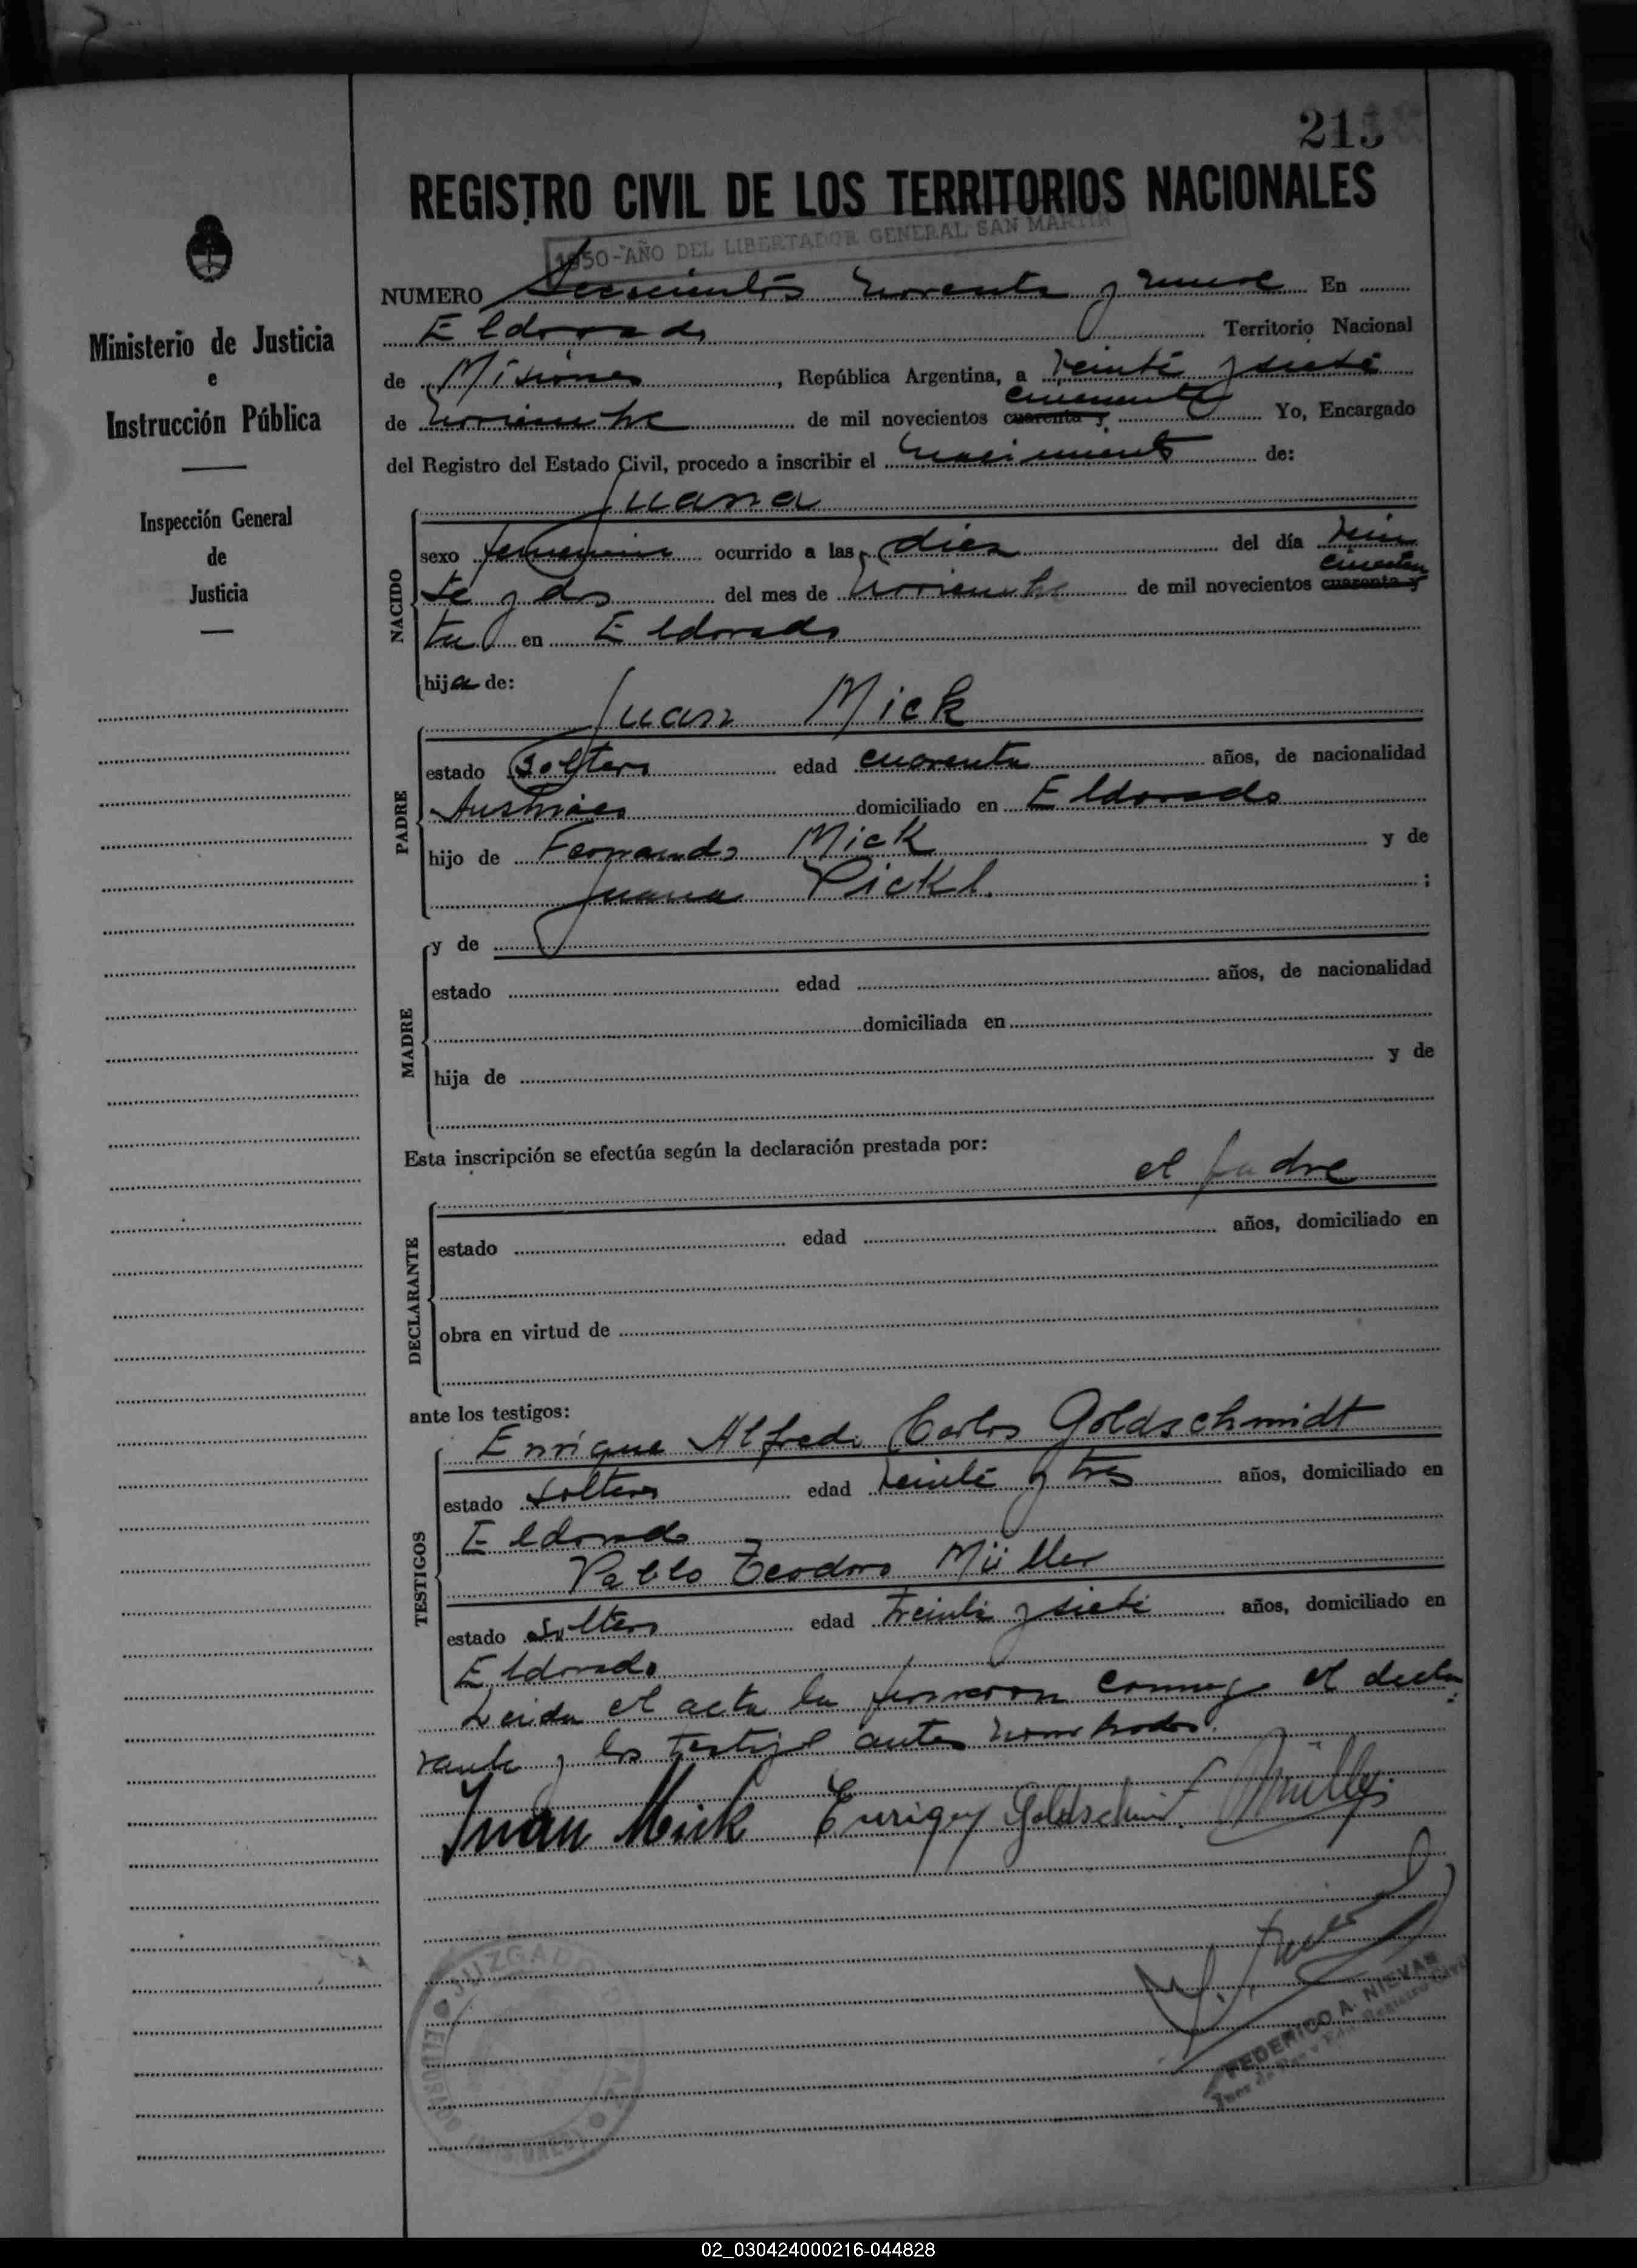 215
REGISTRO CIVIL DE LOS TERRITORIOS NACIONALES
1950-AÑO DEL LIBERTADOR GENERAL SAN MARTIN
Ministerio de Justicia
e
Instrucción Pública
Inspección General
de
Justicia
NUMERO Seiscientos noventa y nueve En
Eldorado Territorio Nacional
de Misiones, República Argentina, a veinte y siete
cincuenta
de noviembre de mil novecientos cuarenta y Yo, Encargado
del Registro del Estado Civil, procedo a inscribir el nacimiento de:
Juana
NACIDO
sexo femenino ocurrido a las diez del día vein
cincuen
te y dos del mes de noviembre de mil novecientos cuarenta y
ta en Eldorado
hija de:
Juan Mick
PADRE
estado soltero edad cuarenta años, de nacionalidad
Austriaco domiciliado en Eldorado
hijo de Fernando Mick y de
Juana Pickl ;
MADRE
y de
estado edad años, de nacionalidad
domiciliada en
hija de y de
Esta inscripción se efectúa según la declaración prestada por:
el padre
DECLARANTE
estado edad años, domiciliado en
obra en virtud de
ante los testigos:
Enrique Alfredo Carlos Goldschmidt
TESTIGOS
estado soltero edad veinte y tres años, domiciliado en
Eldorado
Pablo Teodoro Müller
estado soltero edad treinta y siete años, domiciliado en
Eldorado
Leida el acta la firmaron conmigo el decla
rante y los testigos antes nombrados.
Juan Mick Enrique Goldschmidt Müller
JUZGADO DE PAZ
ELDORADO (MISIONES)
FEDERICO A. NIEVAS
Juez de Paz y Enc. Registro Civil
02_030424000216-044828